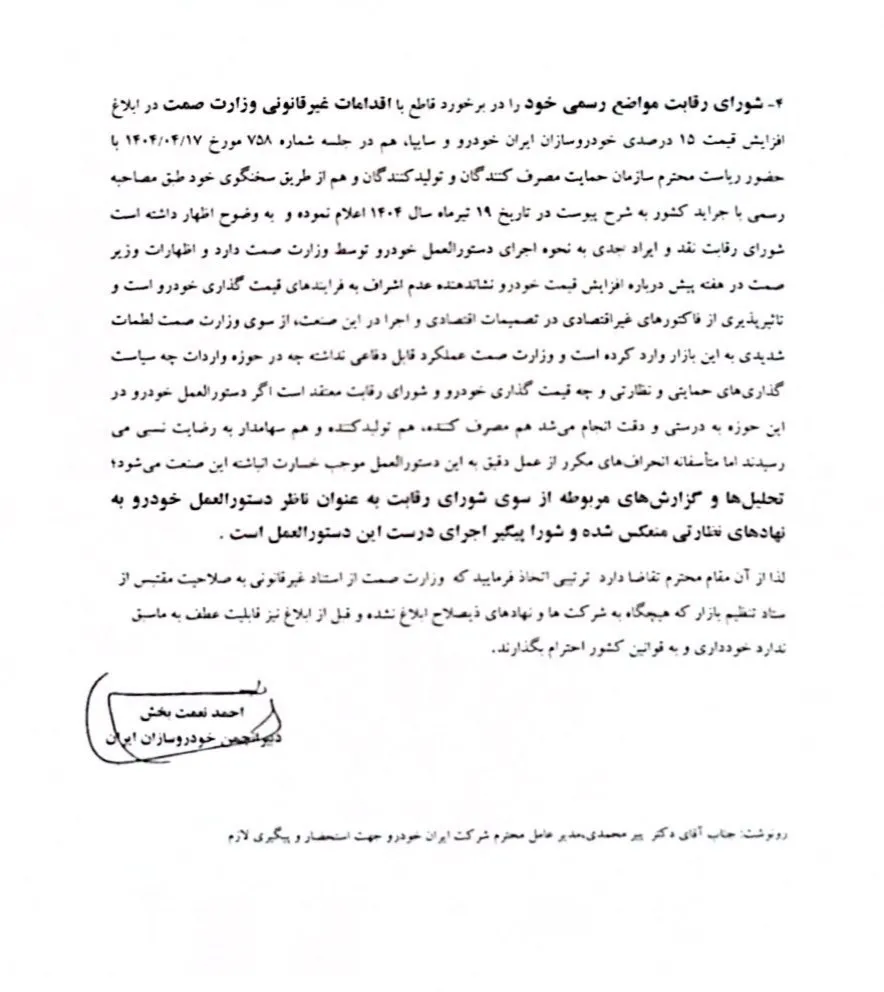 ۴- شورای رقابت مواضع رسمی خود را در برخورد قاطع با اقدامات غیرقانونی وزارت صمت در ابلاغ
افزایش قیمت ۱۵ درصدی خودروسازان ایران خودرو و سایپا، هم در جلسه شماره ۷۵۸ مورخ ۱۴۰۴/۰۴/۱۷ با
حضور ریاست محترم سازمان حمایت مصرف کنندگان و تولیدکنندگان و هم از طریق سخنگوی خود طبق مصاحبه
رسمی با جراید کشور به شرح پیوست در تاریخ ۱۹ تیرماه سال ۱۴۰۴ اعلام نموده و به وضوح اظهار داشته است
شورای رقابت نقد و ایراد جدی به نحوه اجرای دستورالعمل خودرو توسط وزارت صمت دارد و اظهارات وزیر
صمت در هفته پیش درباره افزایش قیمت خودرو نشاندهنده عدم اشراف به فرایندهای قیمت گذاری خودرو است و
تاثیرپذیری از فاکتورهای غیراقتصادی در تصمیمات اقتصادی و اجرا در این صنعت، از سوی وزارت صمت لطمات
شدیدی به این بازار وارد کرده است و وزارت صمت عملکرد قابل دفاعی نداشته چه در حوزه واردات چه سیاست
گذاری‌های حمایتی و نظارتی و چه قیمت گذاری خودرو و شورای رقابت معتقد است اگر دستورالعمل خودرو در
این حوزه به درستی و دقت انجام می‌شد هم مصرف کننده، هم تولیدکننده و هم سهامدار به رضایت نسبی می
رسیدند اما متأسفانه انحراف‌های مکرر از عمل دقیق به این دستورالعمل موجب خسارت انباشته این صنعت می‌شود؛
تحلیل‌ها و گزارش‌های مربوطه از سوی شورای رقابت به عنوان ناظر دستورالعمل خودرو به
نهادهای نظارتی منعکس شده و شورا پیگیر اجرای درست این دستورالعمل است .
لذا از آن مقام محترم تقاضا دارد ترتیبی اتخاذ فرمایید که وزارت صمت از استناد غیرقانونی به صلاحیت مقتبس از
ستاد تنظیم بازار که هیچگاه به شرکت ها و نهادهای ذیصلاح ابلاغ نشده و قبل از ابلاغ نیز قابلیت عطف به ماسبق
ندارد خودداری و به قوانین کشور احترام بگذارند.
احمد نعمت بخش
دبیرانجمن خودروسازان ایران
رونوشت: جناب آقای دکتر پیر محمدی،مدیر عامل محترم شرکت ایران خودرو جهت استحضار و پیگیری لازم